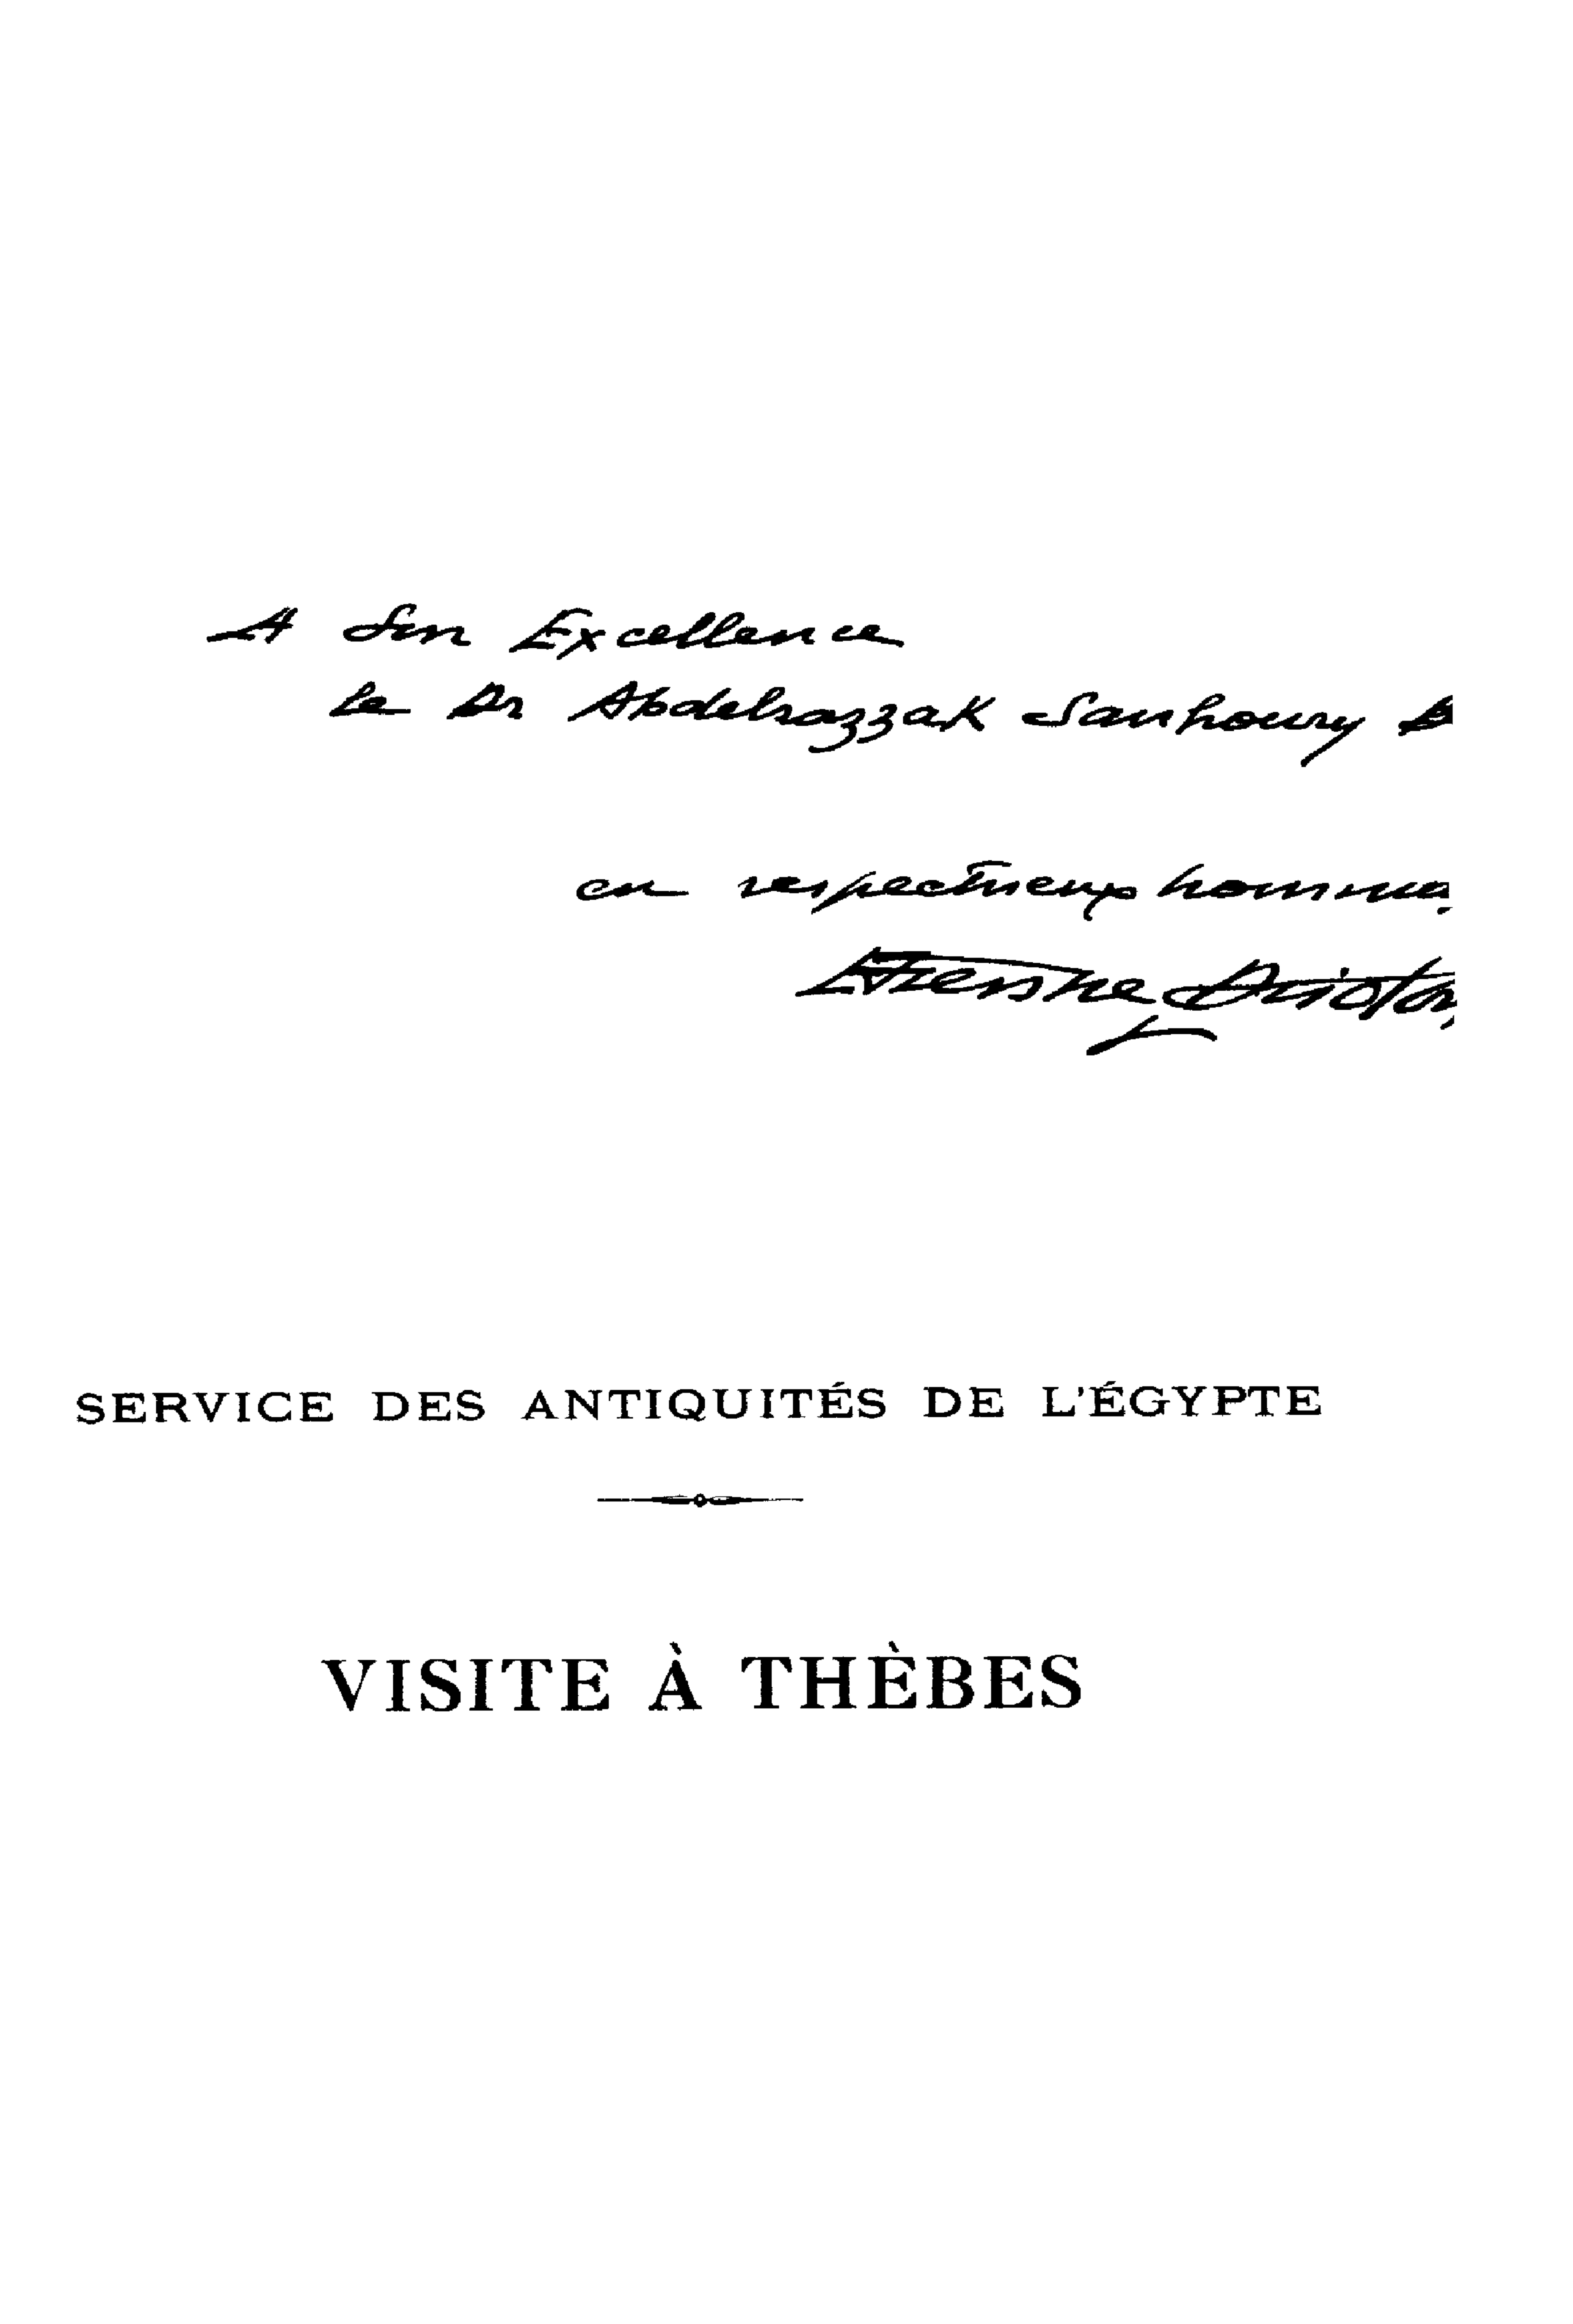 A Son Excellence
le Dr Abdelrazzak Sanhoury
en respectueux
Etienne Drioton
SERVICE DES ANTIQUITÉS DE L'ÉGYPTE
VISITE À THÈBES